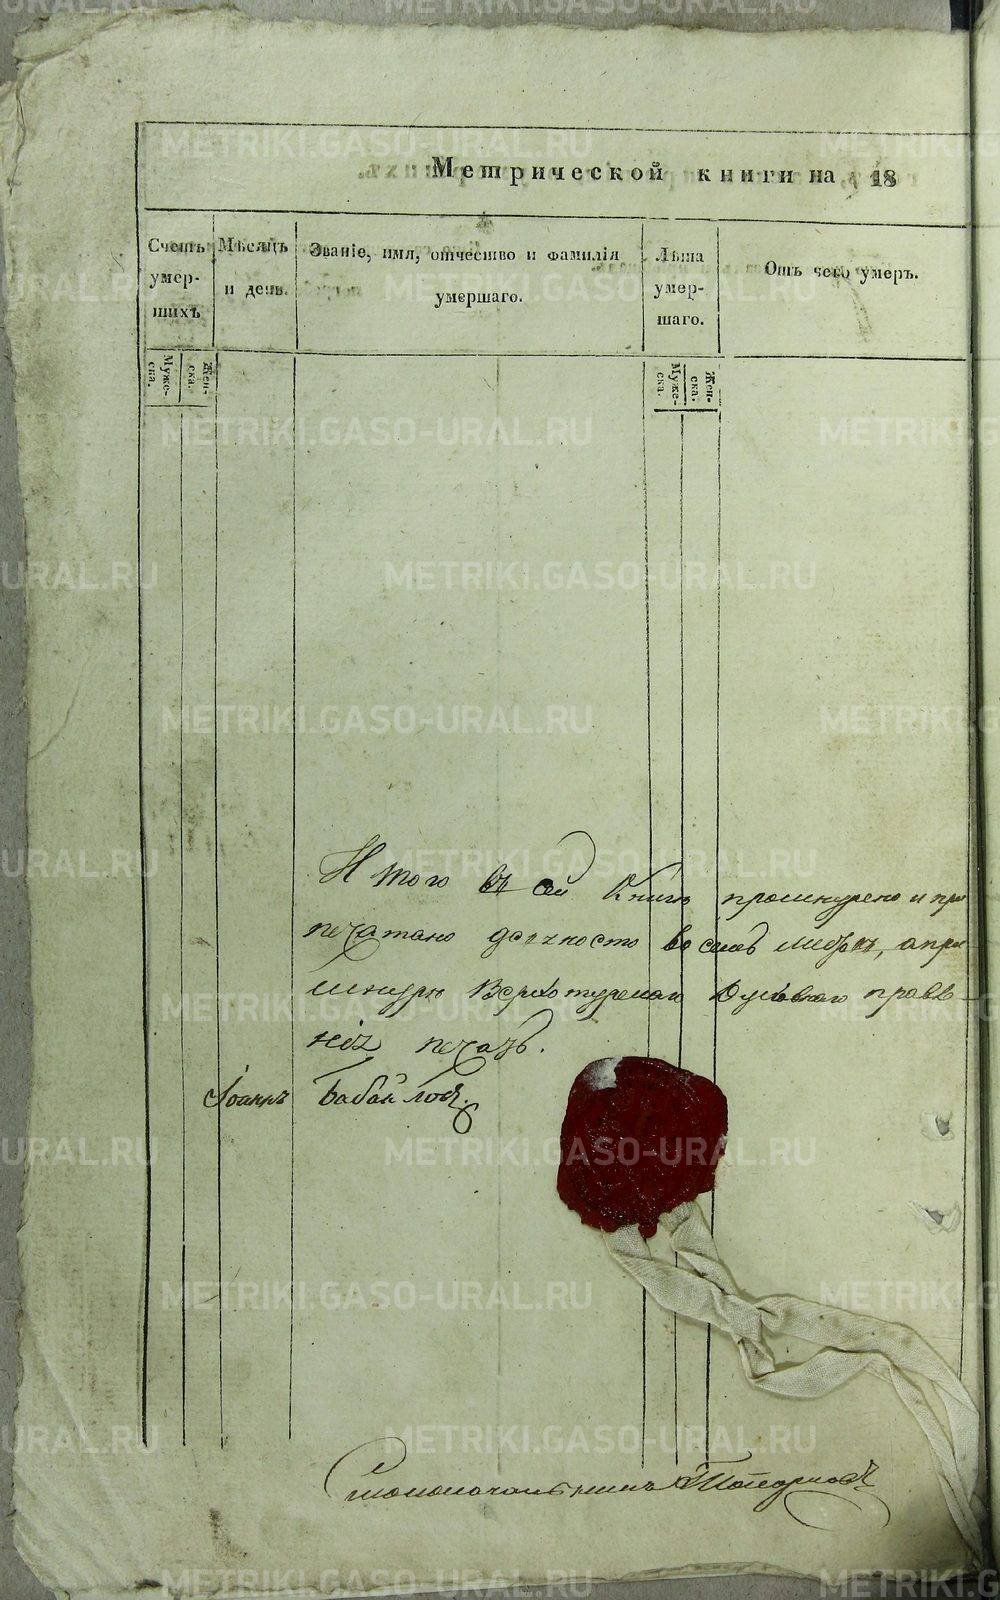 Метрической книги на 18
Счетъ умер-шихъ
Мѣсяцъ и день.
Званіе, имя, отчество и фамилія умершаго.
Лѣта умер-шаго.
Отъ чего умеръ.
Муже-ска.
Жен-ска.
Муже-ска.
Жен-ска.
И того въ сей Книгѣ прошнурено и при
печатано восемь а при
шнурѣ Верхотурскаго Духовнаго правле
нія печать.
Іоаннъ
Столоначальникъ
METRIKI.GASO-URAL.RU